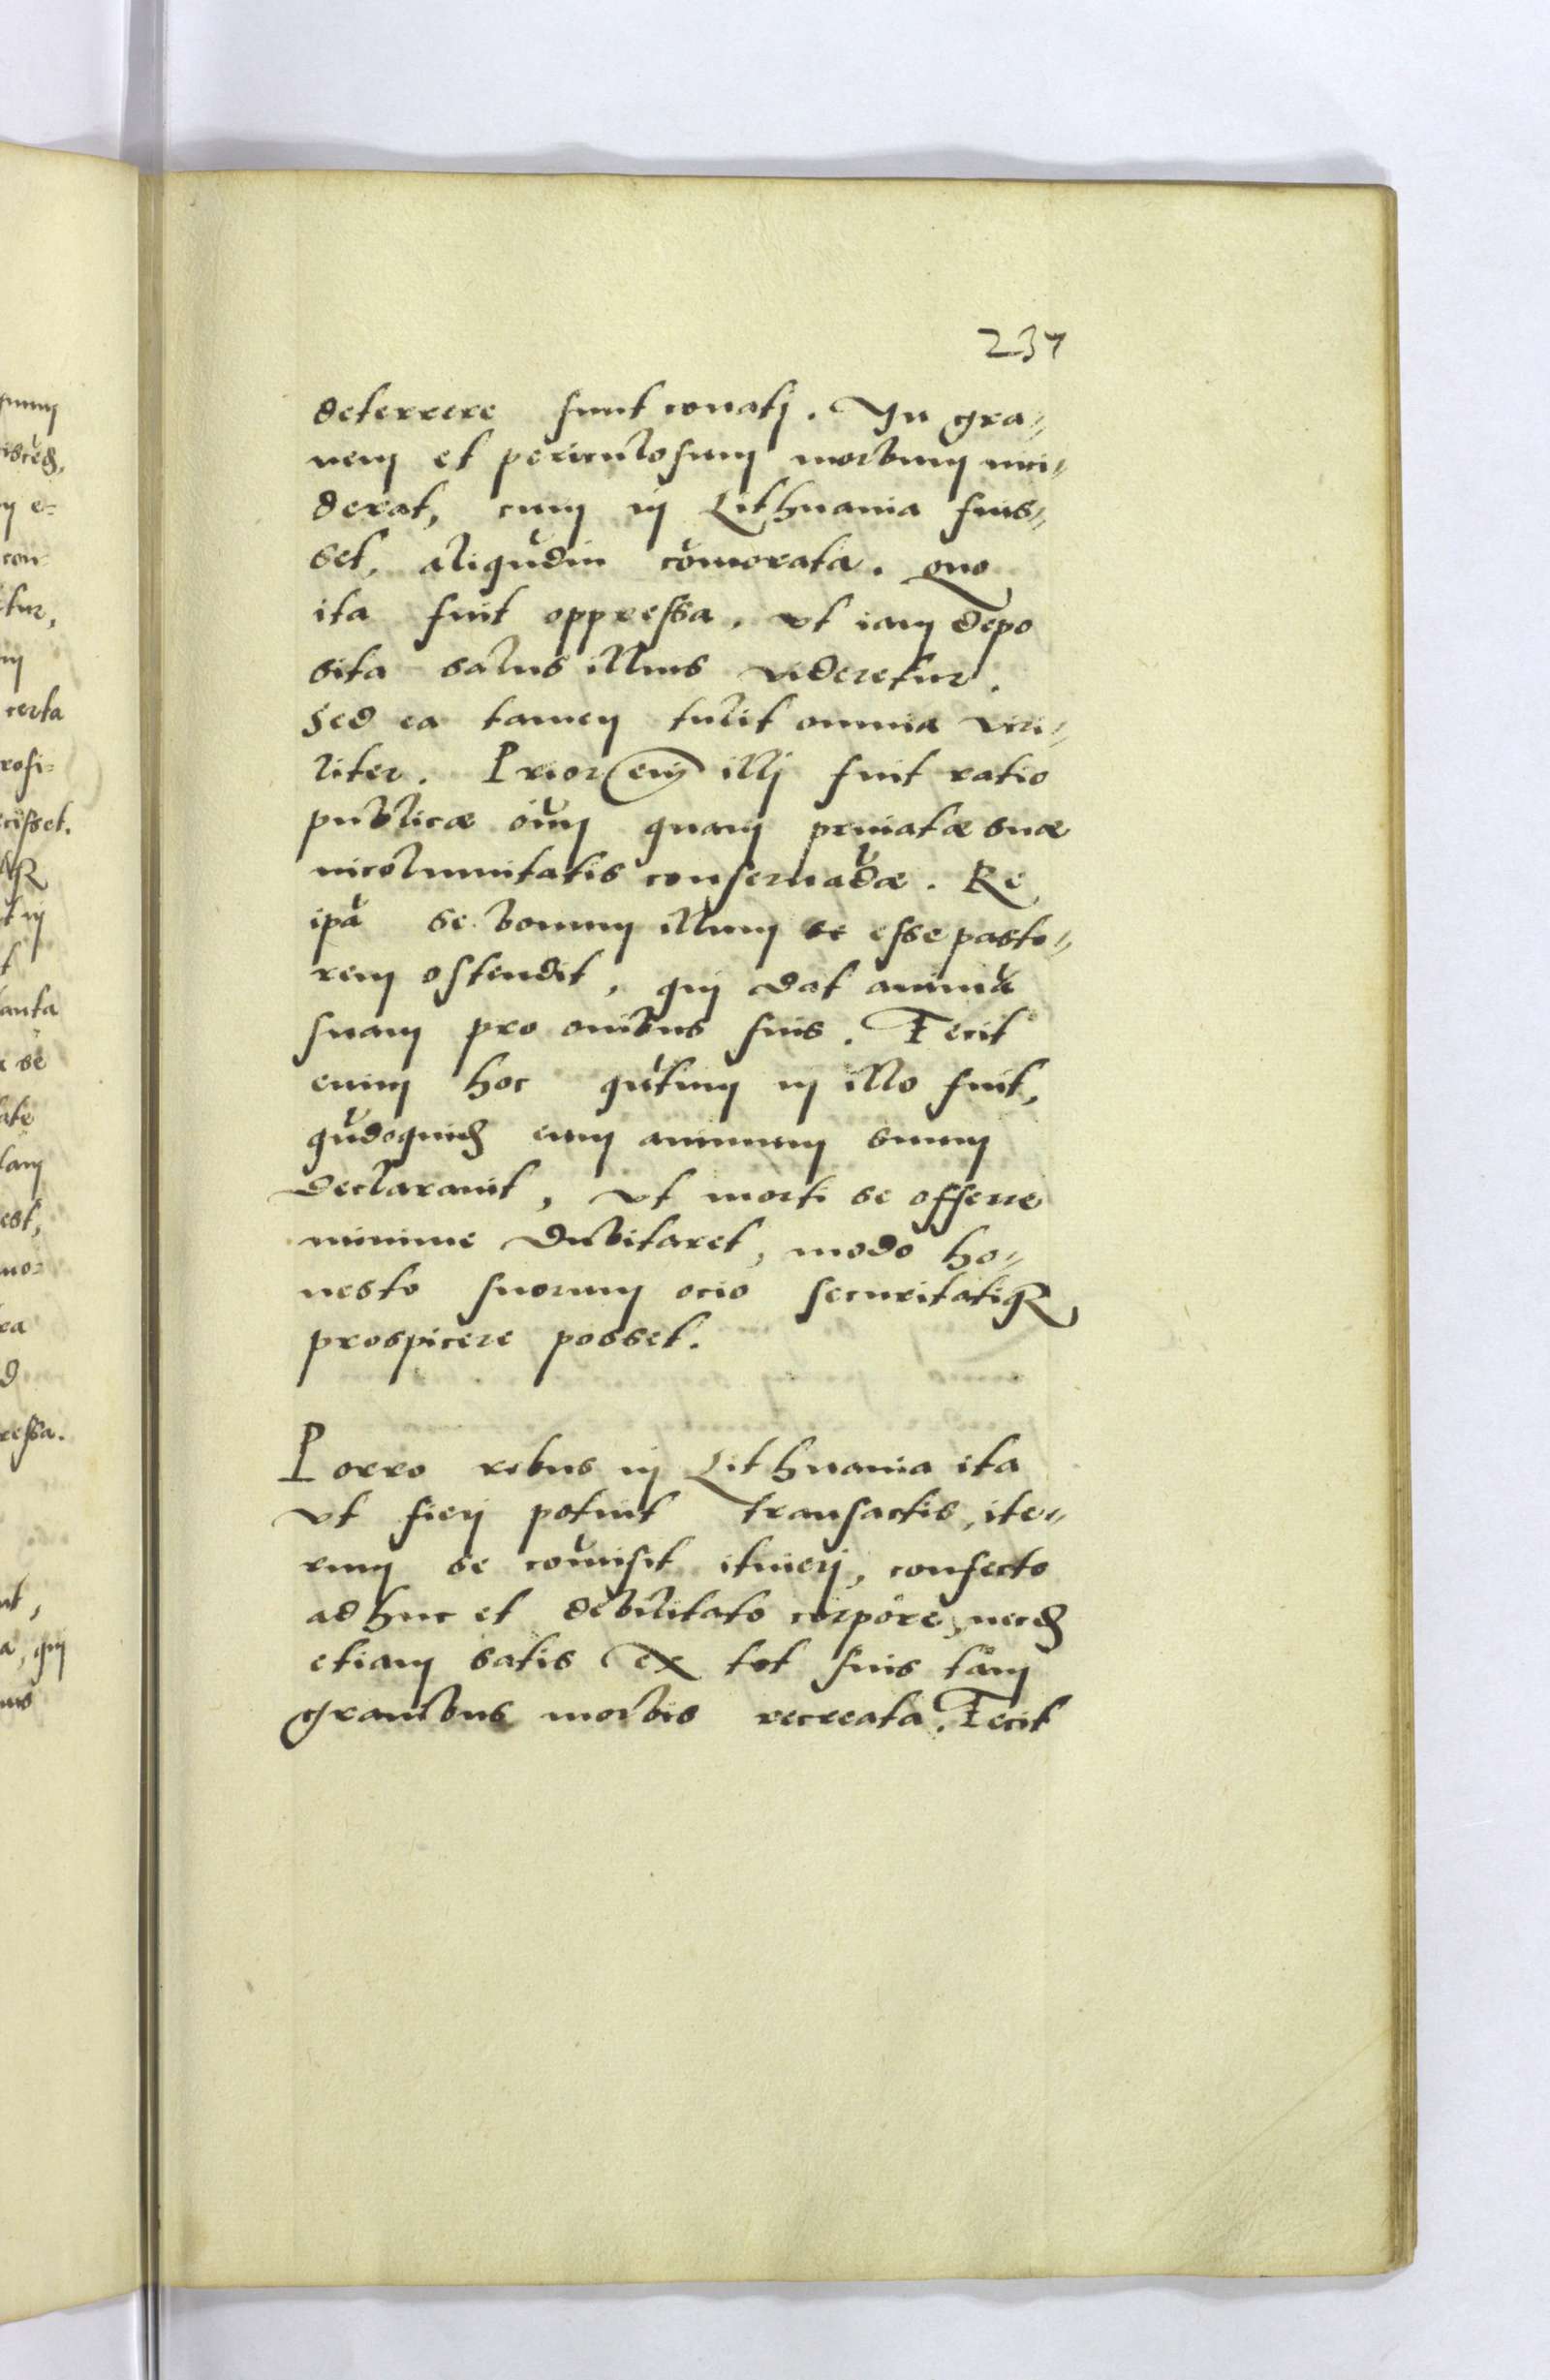 237
deterrere sunt conatj. In gra⸗
vem et periculosum morbum inci⸗
derat, cum in Lithuania fuis⸗
set, aliqūdiu cōmorata. quo
ita fuit oppressa, ut iam depo
sita salus illius videretur.
Sed ea tamen tulit omnia viri⸗
liter. Prior eiī illj fuit ratio
publicæ oīum quam privatæ suæ
incolumitatis conservādæ. Re
ipā se bonum illum se esse pasto⸗
rem ostendit, qui dat animā
suam pro ovibus suis. Fecit
enim hoc qūtum in illo fuit,
qūdoquidē eum animum suum
declaravit, ut morti se offerre
minime dubitaret, modo ho⸗
nesto suorum ocio securitatiqꝫ
prospicere posset.
Porro rebus in Lithuania ita
ut fierj potuit transactis, ite⸗
rum se cōmisit itinerj, confecto
adhuc et debilitato corpore, necdū
etiam satis ex tot suis tam
gravibus morbis recreata. Fecit